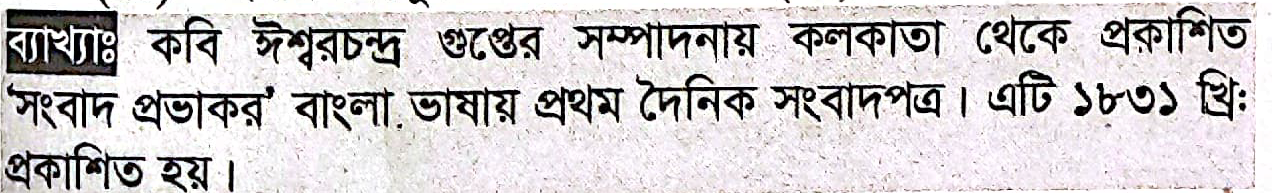 ব্যাখ্যাঃ কবি ঈশ্বরচন্দ্র গুপ্তের সম্পাদনায় কলকাতা থেকে প্রকাশিত
'সংবাদ প্রভাকর' বাংলা ভাষায় প্রথম দৈনিক সংবাদপত্র। এটি ১৮৩১ খ্রিঃ
প্রকাশিত হয়।